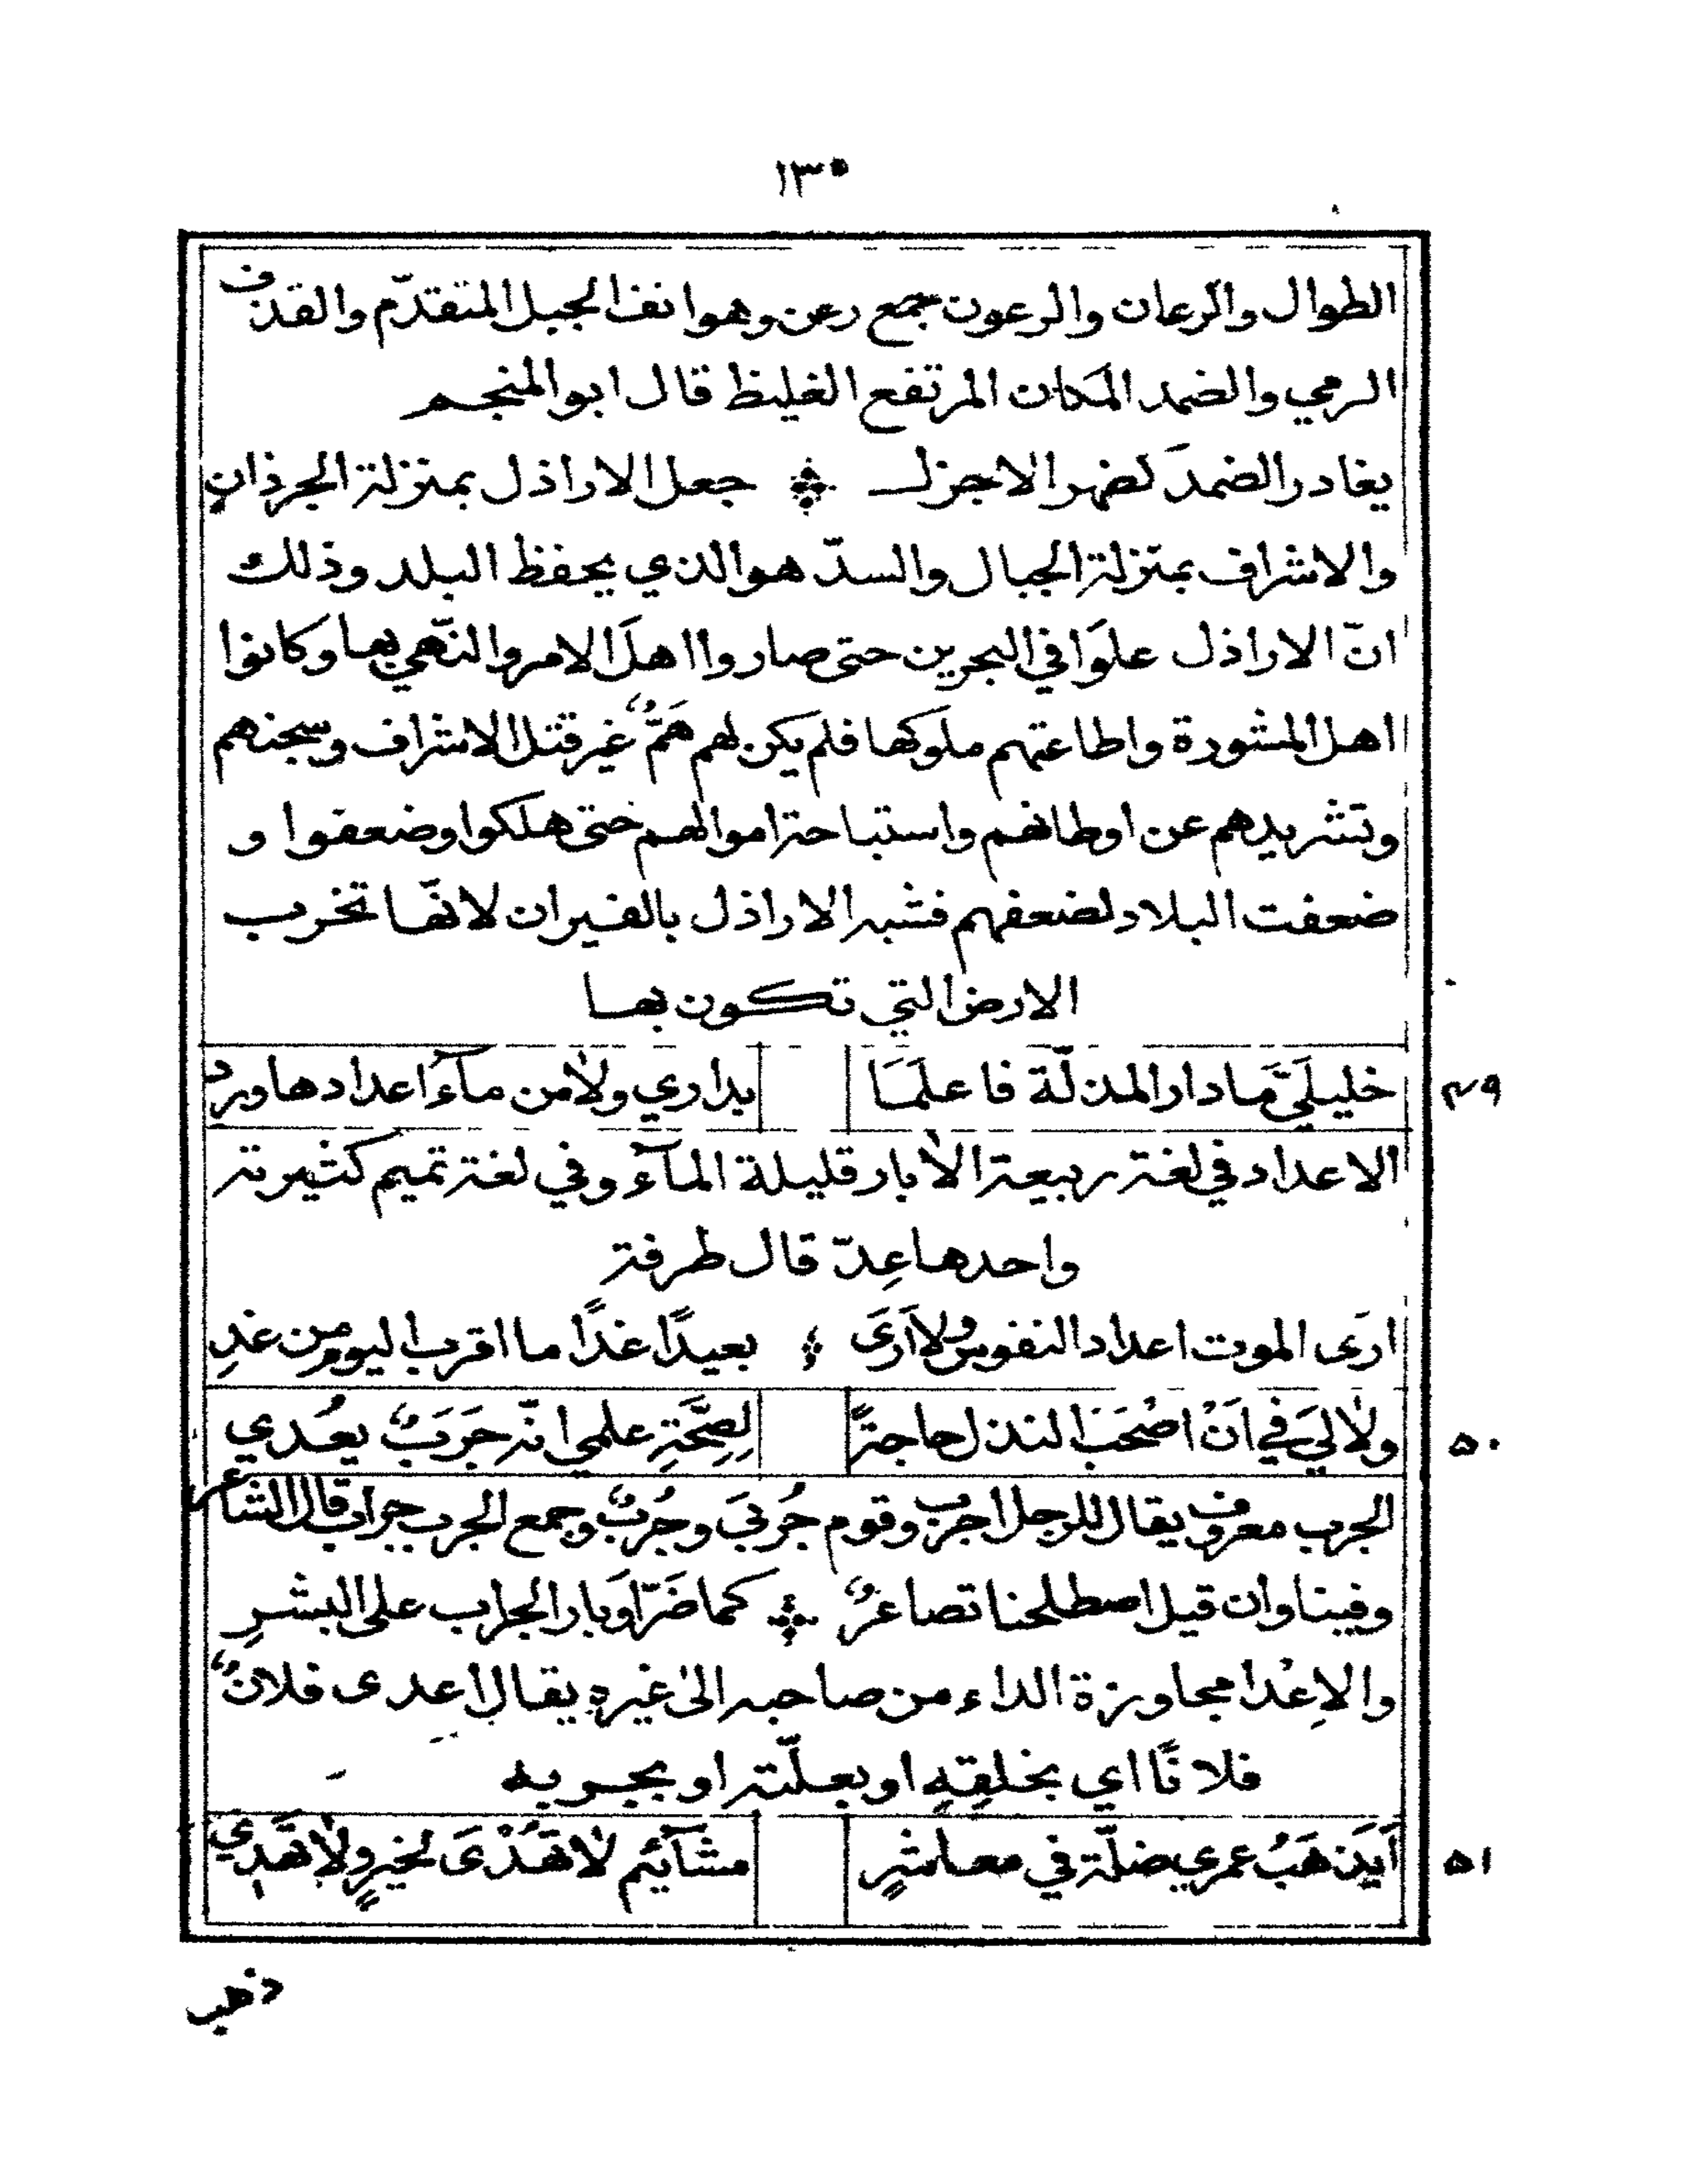 ١٣٠
الطوال والرعان والرعون جمع رعن وهو انف الجبل المتقدّم والقذف
الرمي والضمد المكان المرتفع الغليظ قال ابو المنجم
يغادر الضمدَ لضهر الاجزل جعل الاراذل بمنزلة الجرذان
والاشراف بمنزلة الجبال والسدّ هو الذي يحفظ البلد وذلك
انّ الاراذل علَوا في البحرين حتى صاروا اهلَ الامر والنّهي بها وكانوا
اهل المشورة واطاعتهم ملوكها فلم يكن لهم هَمٌّ غير قتل الاشراف وسجنهم
وتشريدهم عن اوطانهم واستباحة اموالهم حتى هلكوا وضعفوا و
ضعفت البلاد لضعفهم فشبه الاراذل بالفيران لانّها تخرب
الارض التي تكون بها
٤٩ خليلَيَّ مَا دار المذلّة فاعلَمَا بداري ولا من مآءِ اعدادها ورد
الاعداد في لغة ربيعة الابار قليلة المآء وفي لغة تميم كثيرته
واحدها عِدّ قال طرفة
ارَى الموت اعداد النفوس ولا اَرَى بعيدًا غدًا ما اقرب اليوم من غدِ
٥٠ ولا لِيَ في اَنْ اصْحَبَ النذل حاجةً لِصِحَّةِ علمي انّه جَرَبٌ يعُدي
الجرب معروف يقال للرجل اجرب وقوم جُربَى وجُربٌ وجمع الجرب جراب قال الشاعر
وفينا وان قيل اصطلحنا تصاغرٌ كما ضَرّ اَوبار الجراب على البشرِ
والاِعْدا مجاوزة الداء من صاحبه الى غيره يقال اعدى فلانٌ
فلانًا اي بخلقِهِ او بعلّته او بجربه
٥١ اَيَذهَبُ عمري ضلّة في معاشرٍ مشآئيم لا تهْدَى لخيرٍ ولا تَهْدِي
ذهب